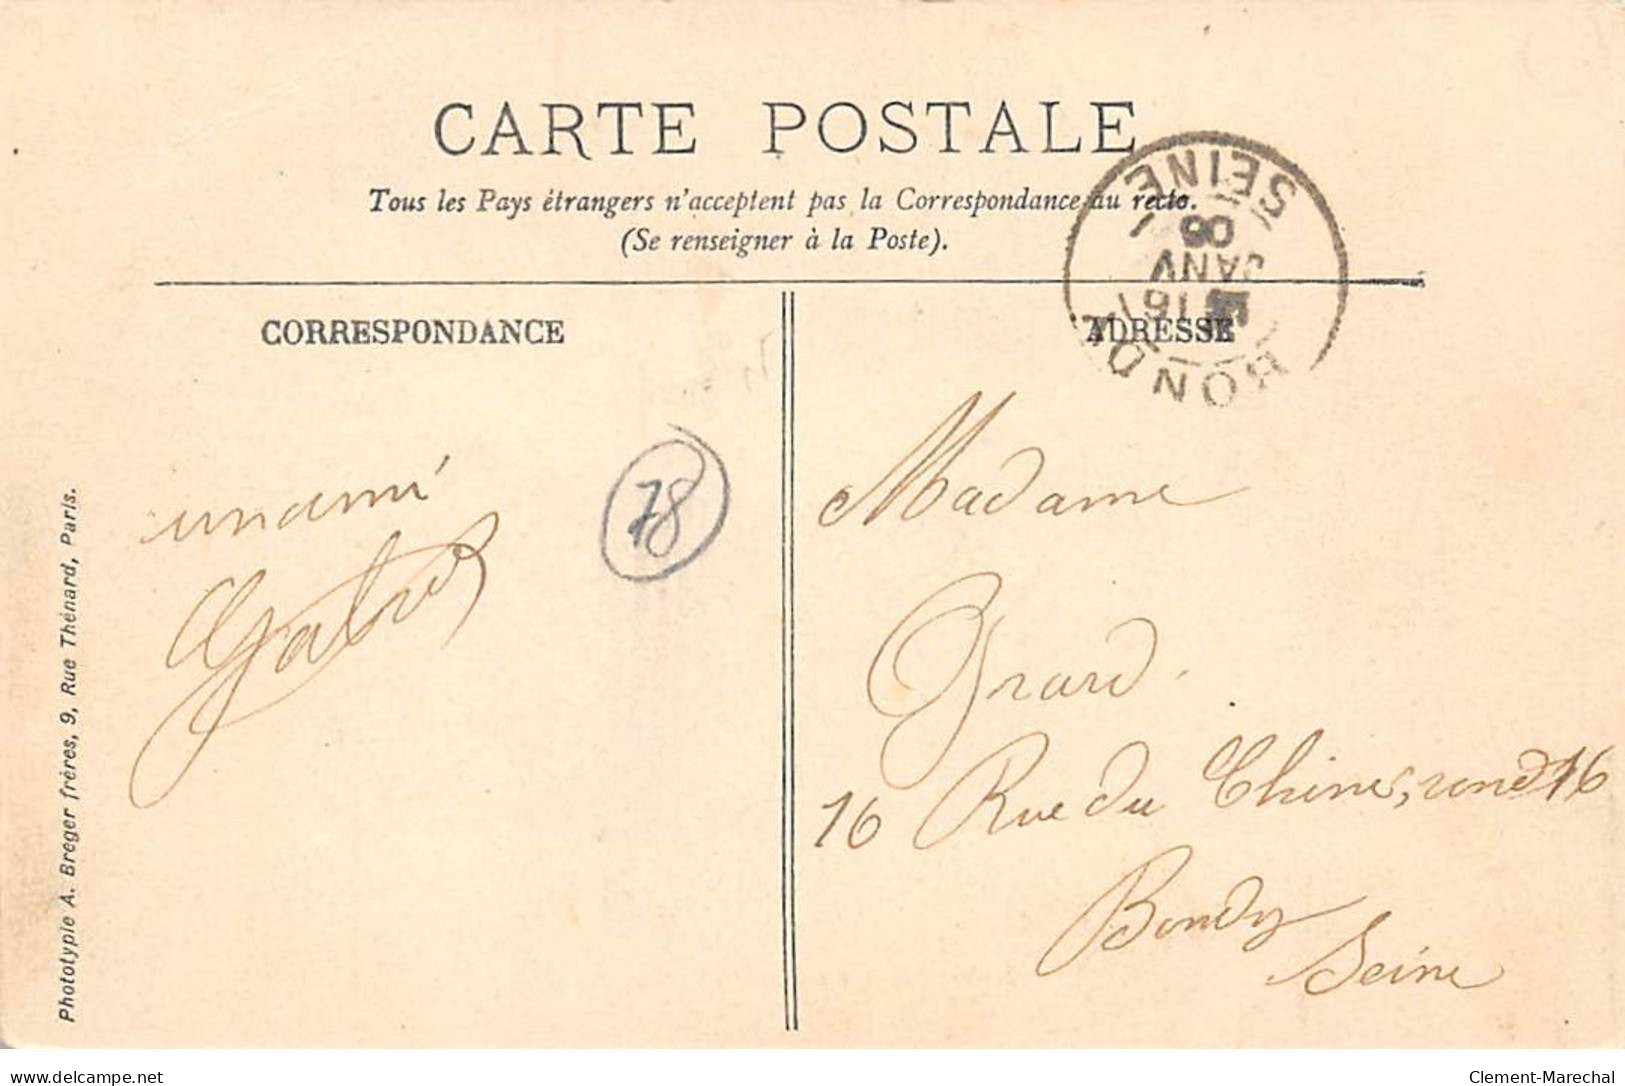 CARTE POSTALE
Tous les Pays étrangers n'acceptent pas la Correspondance au recto.
(Se renseigner à la Poste).
CORRESPONDANCE
ADRESSE
SEINE
06
JANV
16
BONDY
78
un ami
Madame
16 Rue du
16
Bondy
Seine
Phototypie A. Breger frères, 9, Rue Thénard, Paris.
Clement-Marechal